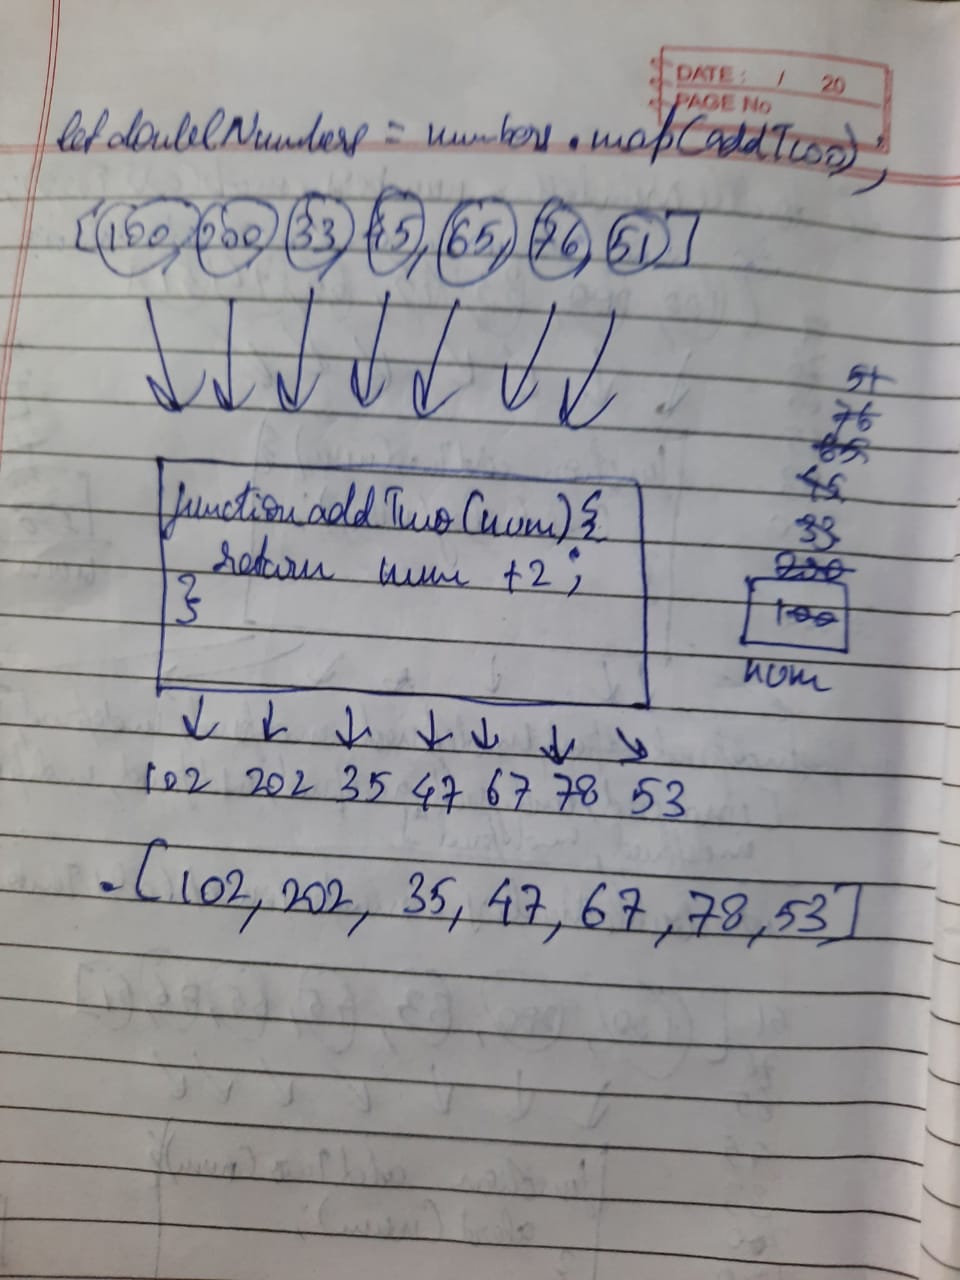 DATE: / 20
PAGE No
let doubelNumbers = numbers.map(addTwo);
[100, 200, 33, 45, 65, 76, 51]
51
76
65
45
function addTwo (num) {
33
return num +2;
200
}
100
num
102 202 35 47 67 78 53
[102, 202, 35, 47, 67, 78, 53]